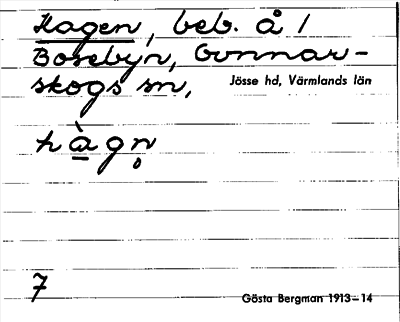 Hagen, beb. å 1
Bosebyn, Gunnar-
skogs sn, Jösse hd, Värmlands län
hà̱gn̥
7
Gösta Bergman 1913–14